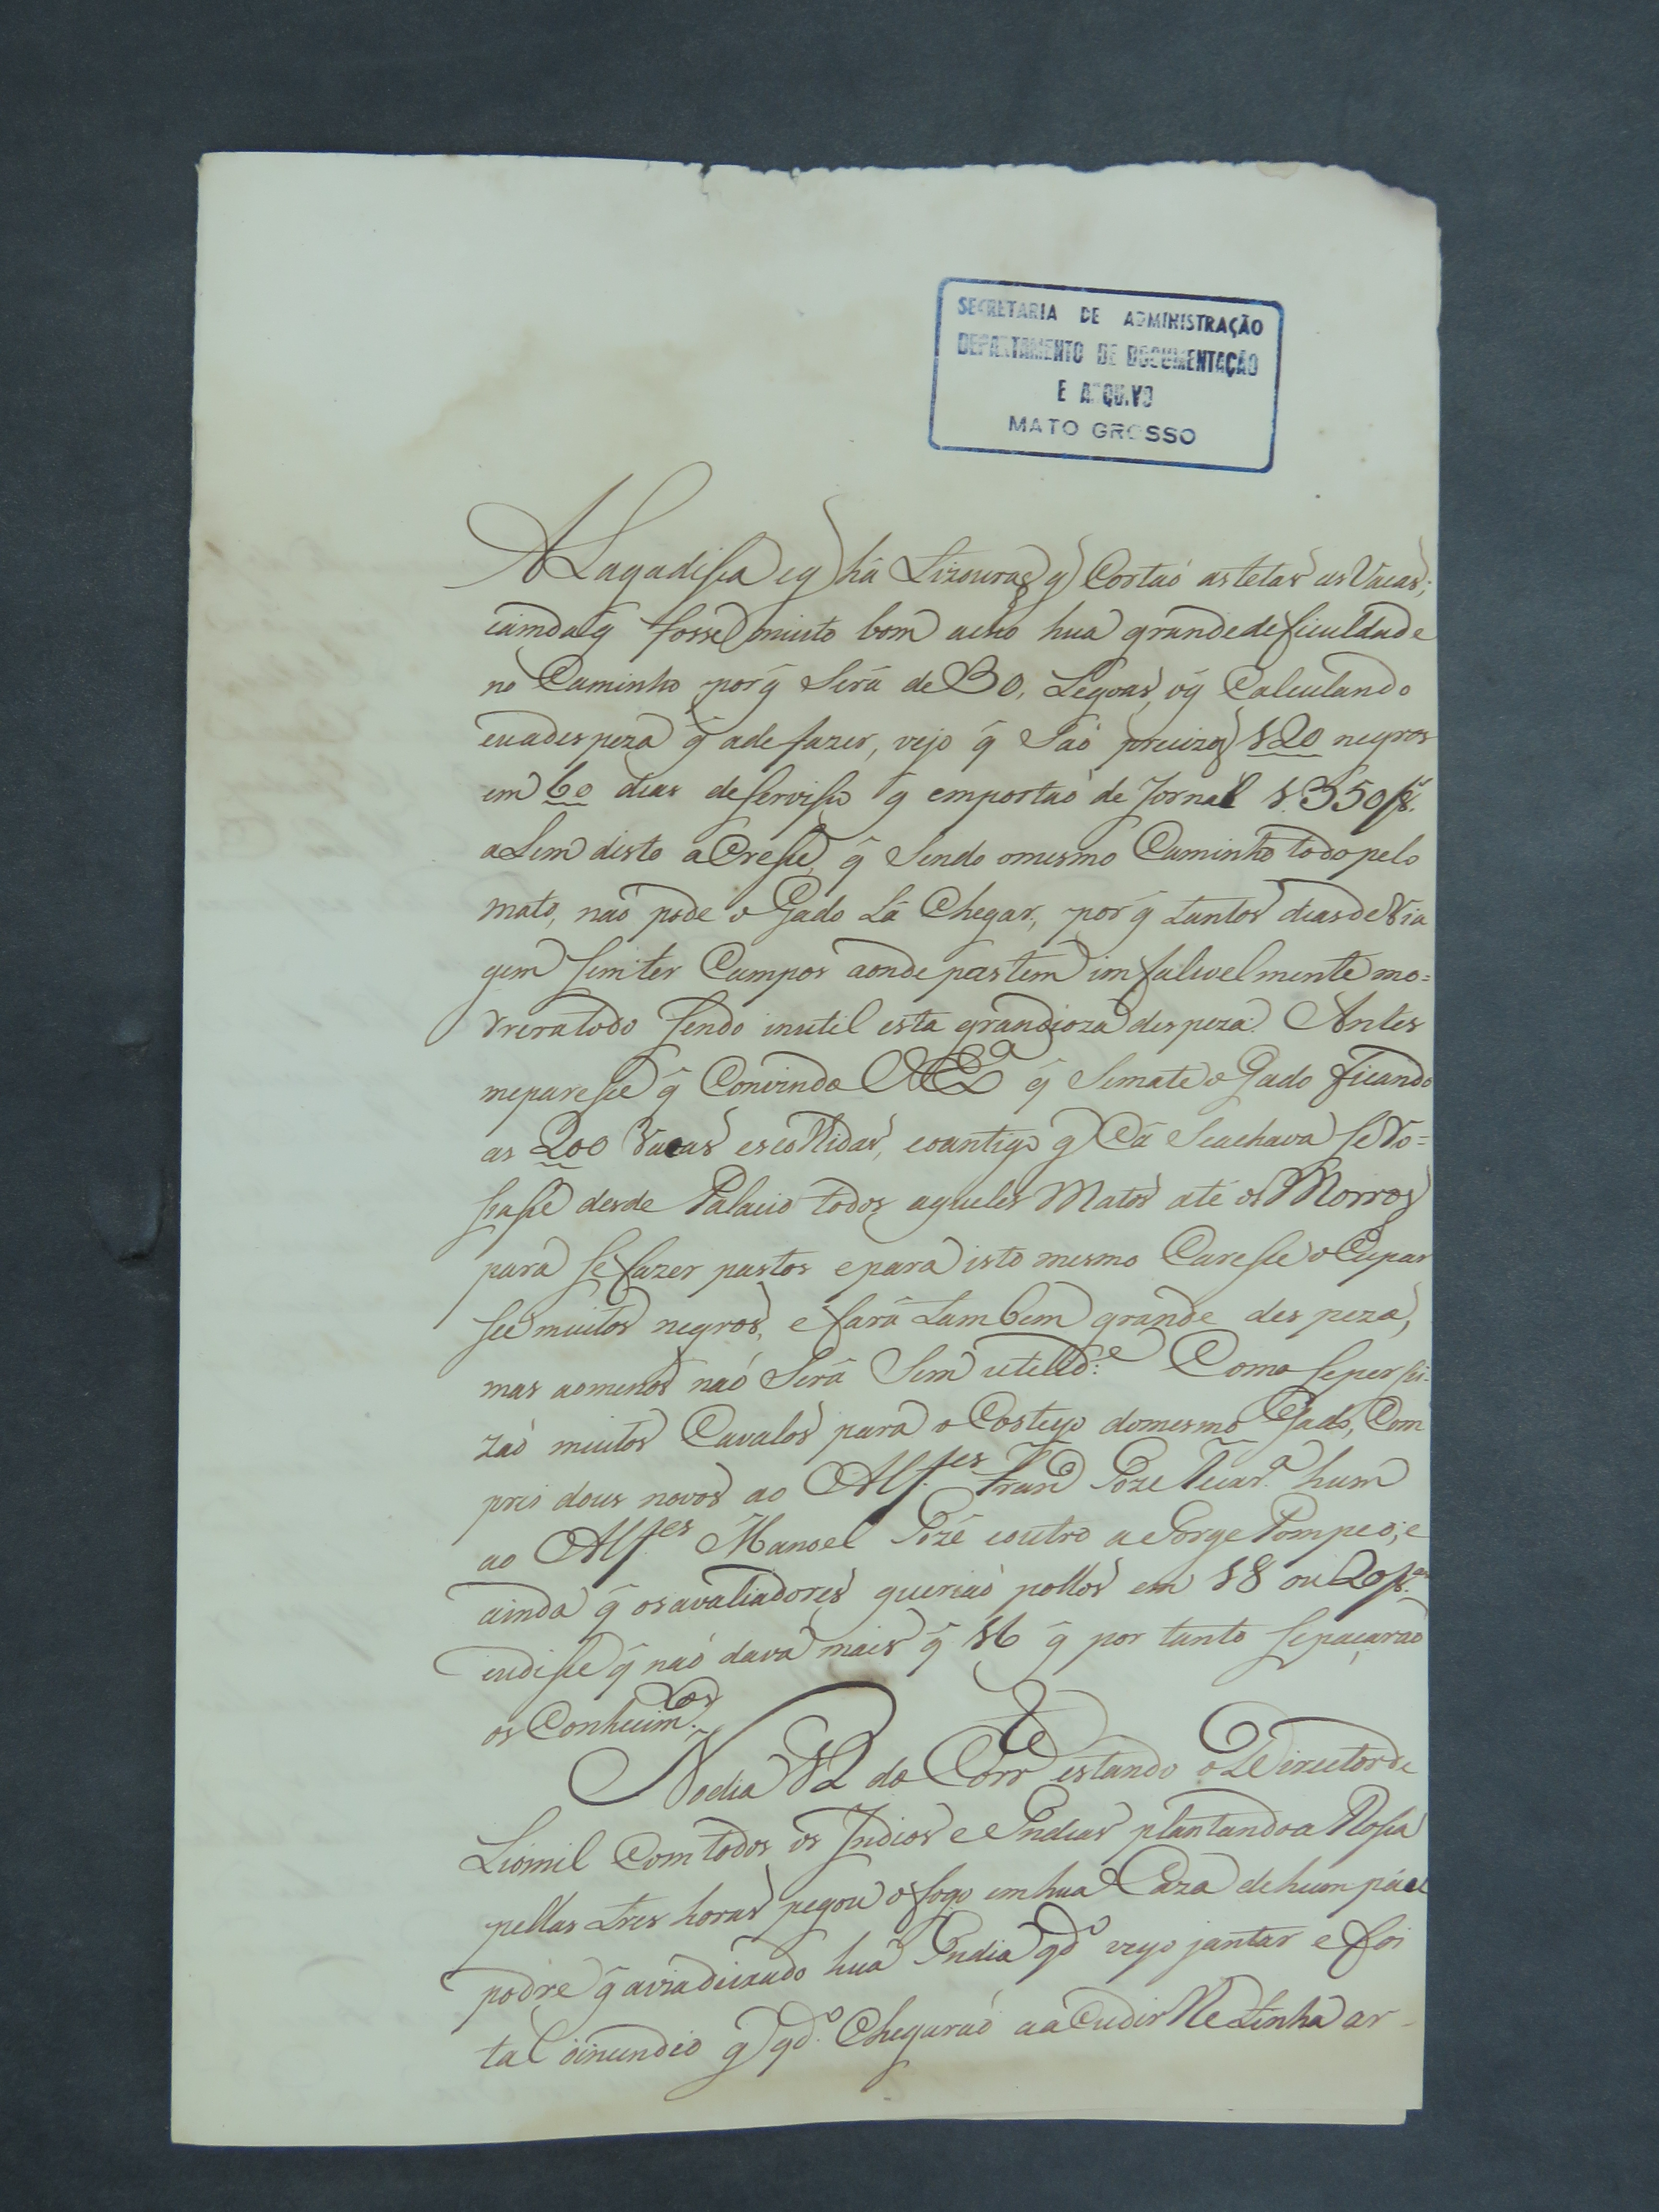 SECRETARIA DE ADMINISTRAÇÃO
DEPARTAMENTO DE DOCUMENTAÇÃO
E ARQUIVO
MATO GROSSO
ALagadissa e q̃ há Tizouras q̃ Cortaó astetas as Vacas;
aimdaq̃ fosse muito bom acho hua grandedeficuldade
no Caminho porq̃ Será de 30, Legoas, oq̃ Calculando
euadespeza q̃ adefazer, vejo q̃ Saó precizos 120 negros
em 60 dias deservisso q̃ emportaó de Jornal 1.350/8.as
aLem disto aCresse, q̃ Sendo omesmo Caminho todopelo
mato, naó pode o Gado Lá Chegar, porq̃ tantos diasdeVia
gem semter Campos aonde pastem imfalivelmente mo=
rreratodo sendo inutil esta grandioza despeza. Antes
meparesse q̃ Convindo VEx.a q̃ Semate o Gado ficando
as 200 Vacas escolhidas, eoantigo q̃ Cá Seachava se Ro=
sasse desde Palacio todos aqueles Matos até os Morros
para sefazer pastos epara isto mesmo Caresse oCupar
sse muitos negros, e fará tambem grande despeza,
mas aomenos naó Será Sem utelid.e Como seperssi-
zaó muitos Cavalos para o Costeyo domesmo Gado, Com
prei dous novos ao Alf.es Fran.co Joze hum
ao Alf.es Manoel Jozé eoutro a Jorge Pompeo; e
ainda q̃ osavaliadores queriaó pollos em 18 ou 20/8.as
eudisse q̃ naó dava mais q̃ 16 q̃ por tanto sepaçaraó
os Conhecim.tos
Nodia 12 do Corr.e estando o Directorde
Liomil Comtodos os Indios e Indias plantandoa Rossa
pellas tres horas pegou ofogo emhua Caza dehum páol
podre q̃ aviadeixado hua India qd.o veyo jantar e foi
tal oincendio q̃ qd.o Chegaraó aaCudir Retinha ar-